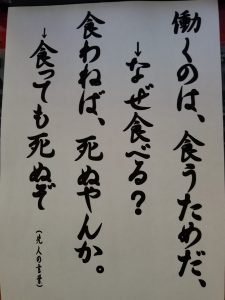 働くのは、食うためだ、
→なぜ食べる？
食わねば、死ぬやんか。
→食っても死ぬぞ
（凡人の言葉）